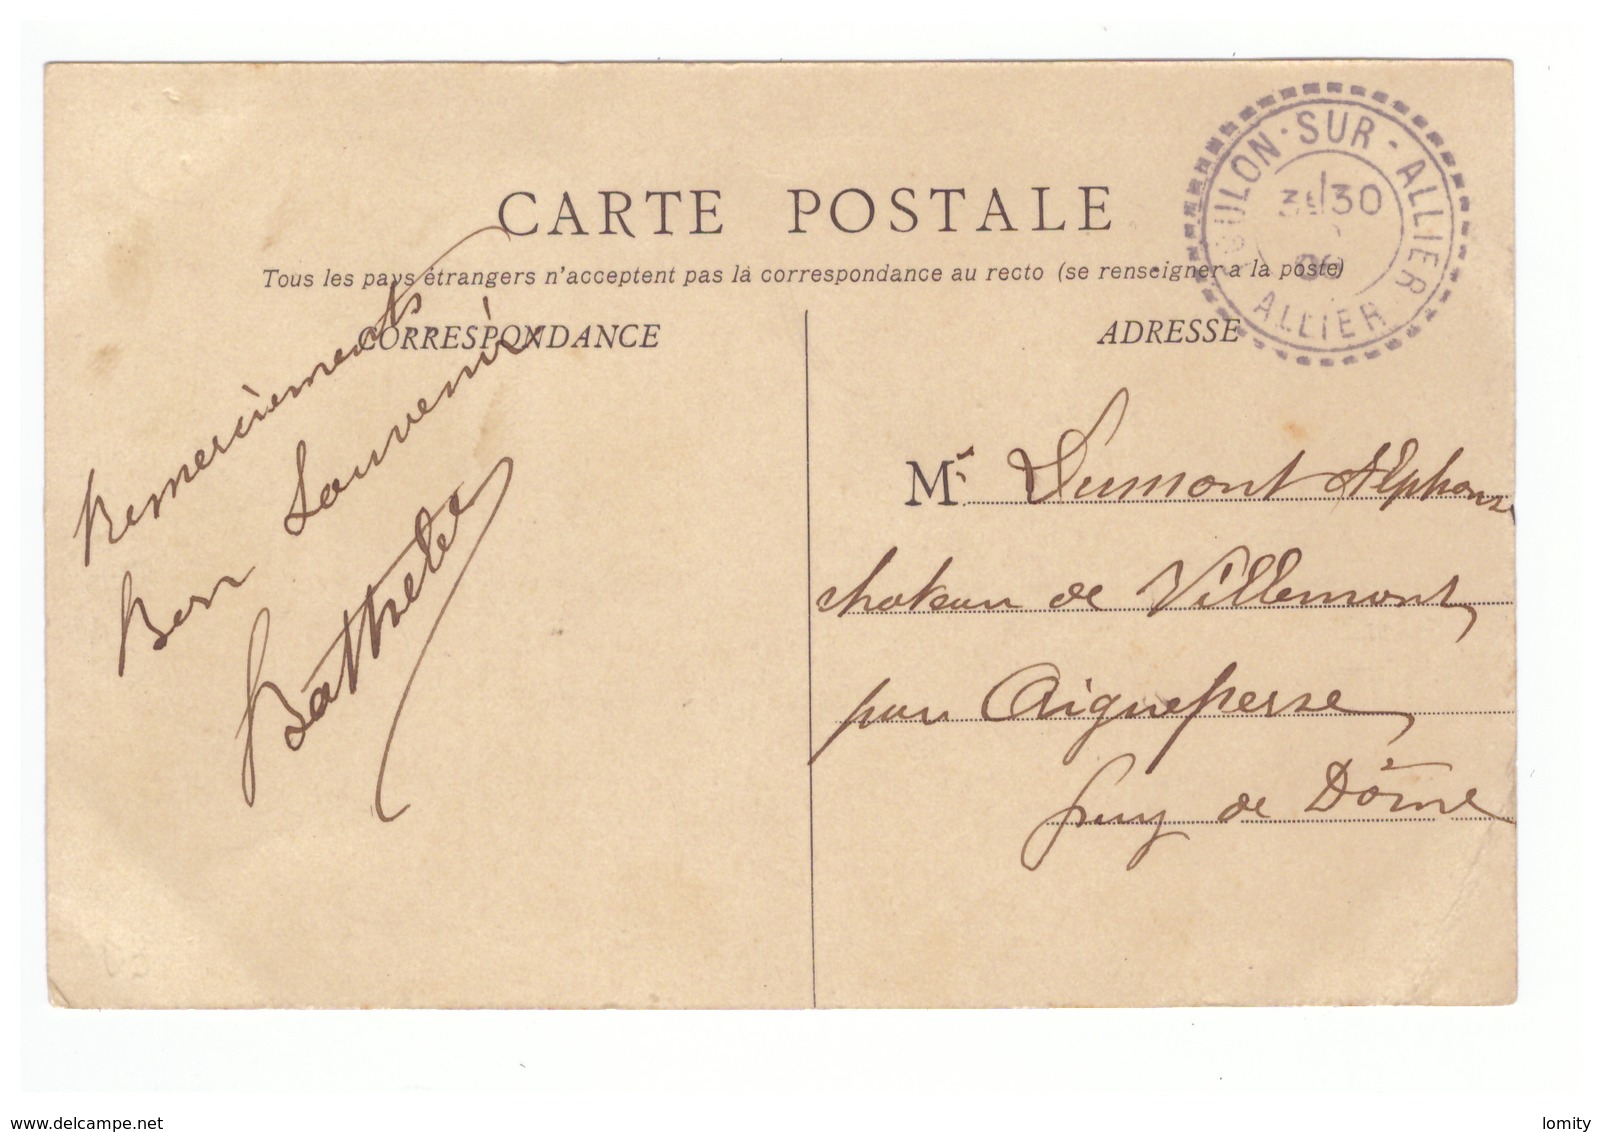 CARTE POSTALE
Tous les pays étrangers n'acceptent pas la correspondance au recto (se renseigner a la poste)
CORRESPONDANCE
ADRESSE
TOULON-SUR-ALLIER
3E 30
ALLIER
Remerciements
Bon Souvenir
Mr Dumont Alphonse
chateau de Villemont,
par Aigueperse,
Puy de Dôme
www.delcampe.net
lomity